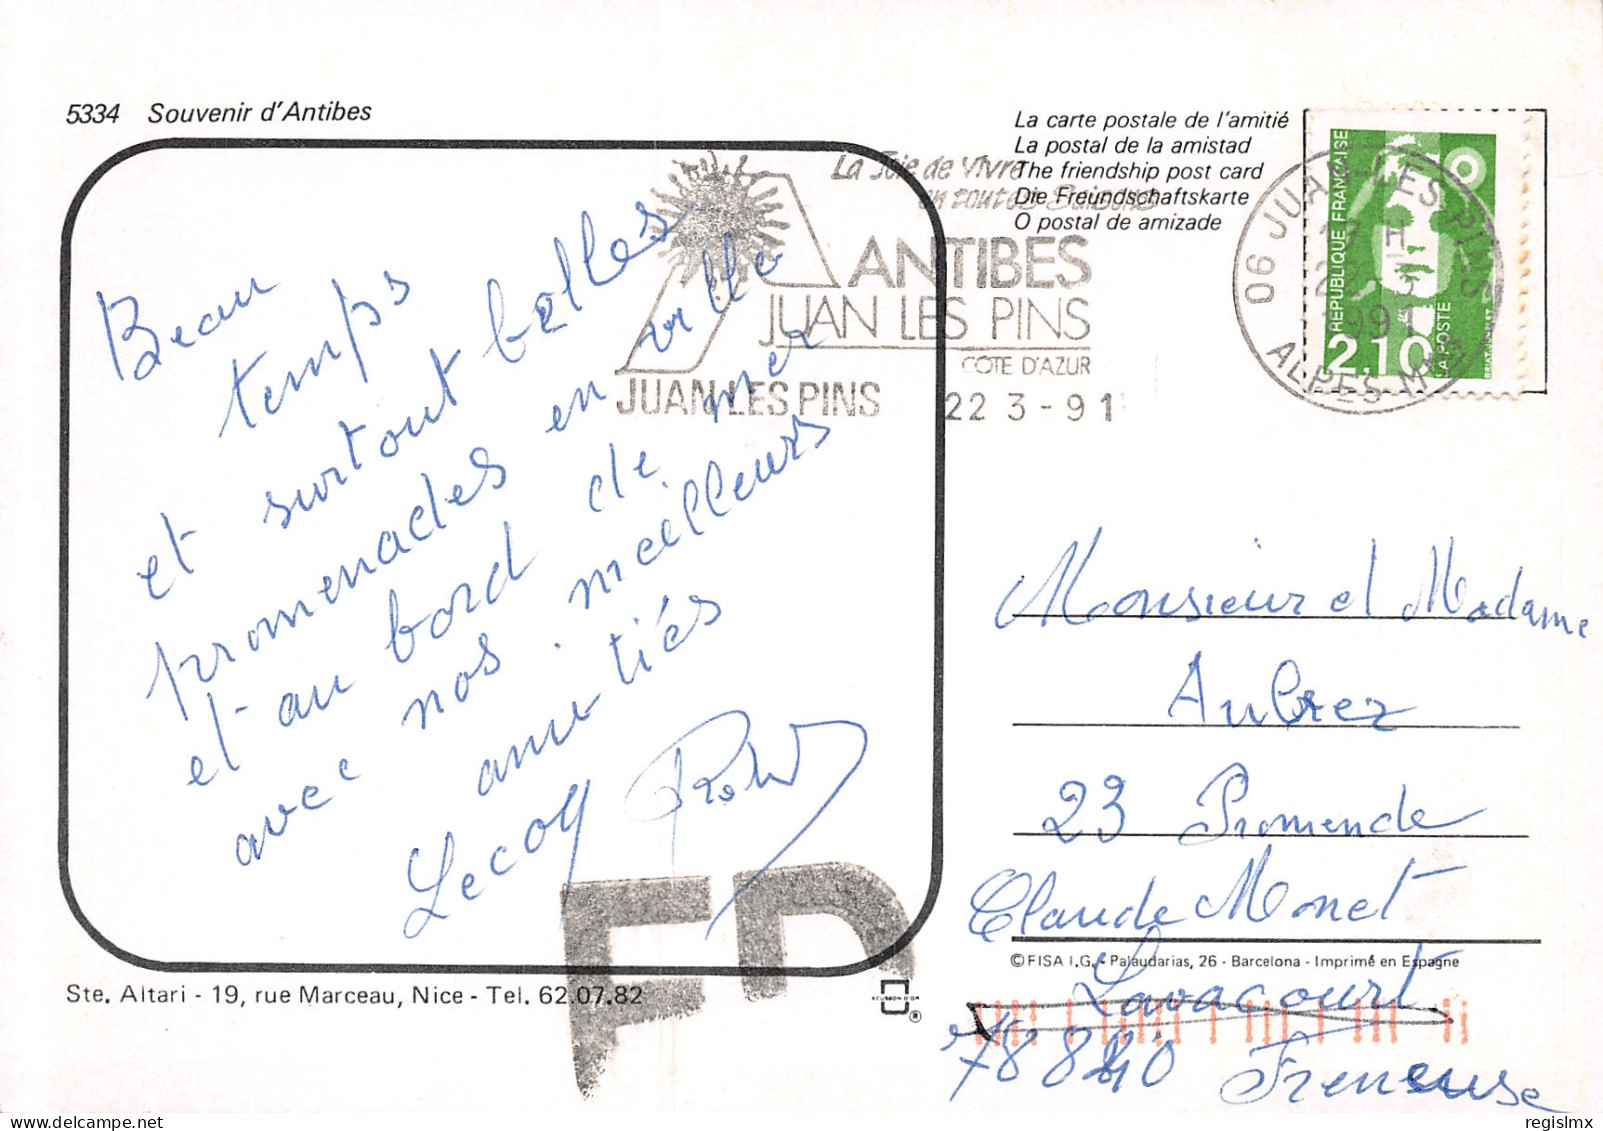 5334 Souvenir d'Antibes
La carte postale de l'amitié
La postal de la amistad
The friendship post card
Die Freundschaftskarte
O postal de amizade
La Joie de Vivre
en toutes Saisons
ANTIBES
JUAN LES PINS
CÔTE D'AZUR
JUAN LES PINS
22 3-91
06 JUAN-LES-PINS
1991
ALPES-MMES
REPUBLIQUE FRANÇAISE
LA POSTE
2,10
Beau
temps
et surtout belles
promenades en ville
et au bord de mer
avec nos meilleurs
amitiés
Lecoq
Monsieur et Madame
Aubrez
23 Promende
Claude Monet
Lavacourt
78840 Freneuse
© FISA I.G. - Palaudarias, 26 - Barcelona - Imprimé en Espagne
Ste. Altari - 19, rue Marceau, Nice - Tel. 62.07.82
ECUSSON D'OR
®
regislmx